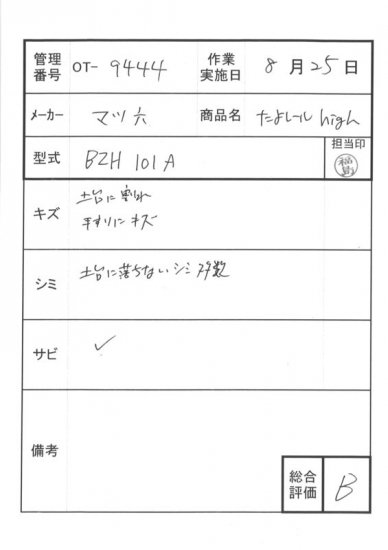 管理番号 OT- 9444 作業実施日 8月25日
メーカー マツ六 商品名 たよレール high
型式 BZH 101A 担当印 福島
キズ 土台に割れ
手すりにキズ
シミ 土台に落ちないシミ多数
サビ ✓
備考
総合評価 B